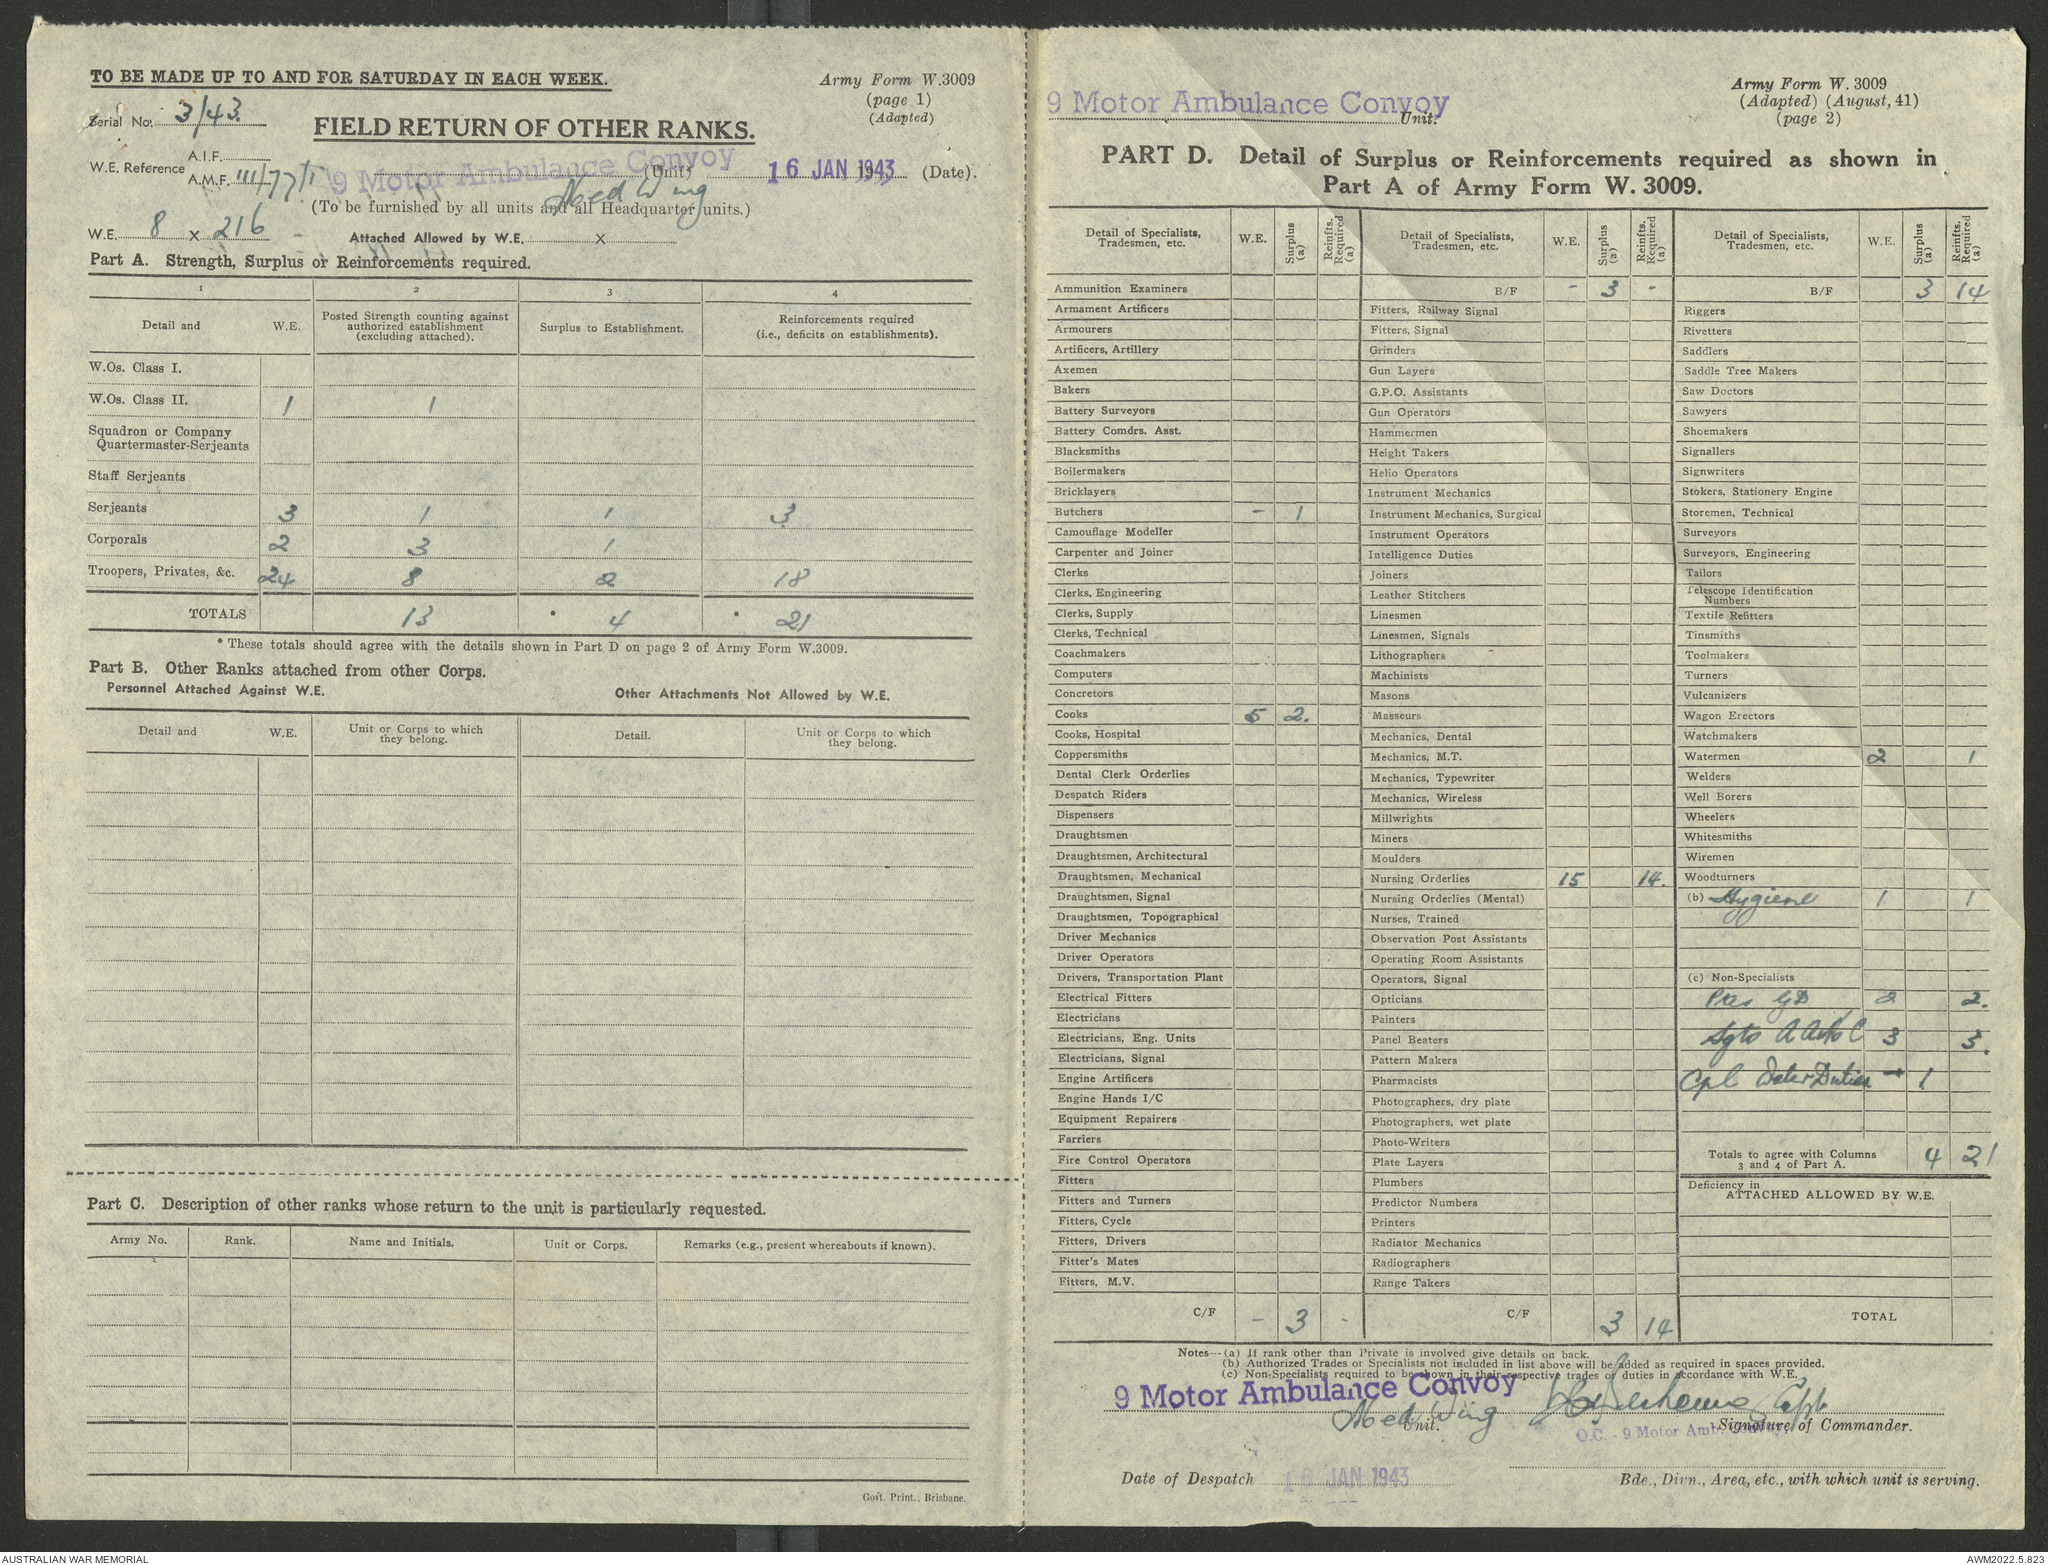 TO BE MADE UP TO AND FOR SATURDAY IN EACH WEEK.
Army Form W.3009
(page 1)
(Adapted)
Serial No. 3/43
FIELD RETURN OF OTHER RANKS.
W.E. Reference A.I.F.
A.M.F. III/77/1
9 Motor Ambulance Convoy (Unit) 16 JAN 1943 (Date).
Med Wing
(To be furnished by all units and all Headquarter units.)
W.E. 8 X 216 Attached Allowed by W.E. X
Part A. Strength, Surplus or Reinforcements required.
1 2 3 4
Detail and W.E. Posted Strength counting against authorized establishment (excluding attached). Surplus to Establishment. Reinforcements required (i.e., deficits on establishments).
W.Os. Class I.
W.Os. Class II. 1 1
Squadron or Company
Quartermaster-Serjeants
Staff Serjeants
Serjeants 3 1 1 3
Corporals 2 3 1
Troopers, Privates, &c. 24 8 2 18
TOTALS 13 * 4 * 21
* These totals should agree with the details shown in Part D on page 2 of Army Form W.3009.
Part B. Other Ranks attached from other Corps.
Personnel Attached Against W.E. Other Attachments Not Allowed by W.E.
Detail and W.E. Unit or Corps to which they belong. Detail. Unit or Corps to which they belong.
Part C. Description of other ranks whose return to the unit is particularly requested.
Army No. Rank. Name and Initials. Unit or Corps. Remarks (e.g., present whereabouts if known).
Govt. Print., Brisbane.
Army Form W. 3009
(Adapted) (August, 41)
(page 2)
9 Motor Ambulance Convoy Unit.
PART D. Detail of Surplus or Reinforcements required as shown in
Part A of Army Form W. 3009.
Detail of Specialists, Tradesmen, etc. W.E. Surplus (a) Reinfts. Required (a)
Ammunition Examiners
Armament Artificers
Armourers
Artificers, Artillery
Axemen
Bakers
Battery Surveyors
Battery Comdrs. Asst.
Blacksmiths
Boilermakers
Bricklayers
Butchers - 1
Camouflage Modeller
Carpenter and Joiner
Clerks
Clerks, Engineering
Clerks, Supply
Clerks, Technical
Coachmakers
Computers
Concretors
Cooks 5 2.
Cooks, Hospital
Coppersmiths
Dental Clerk Orderlies
Despatch Riders
Dispensers
Draughtsmen
Draughtsmen, Architectural
Draughtsmen, Mechanical
Draughtsmen, Signal
Draughtsmen, Topographical
Driver Mechanics
Driver Operators
Drivers, Transportation Plant
Electrical Fitters
Electricians
Electricians, Eng. Units
Electricians, Signal
Engine Artificers
Engine Hands I/C
Equipment Repairers
Farriers
Fire Control Operators
Fitters
Fitters and Turners
Fitters, Cycle
Fitters, Drivers
Fitter's Mates
Fitters, M.V.
C/F - 3 -
Detail of Specialists, Tradesmen, etc. W.E. Surplus (a) Reinfts. Required (a)
B/F - 3 -
Fitters, Railway Signal
Fitters, Signal
Grinders
Gun Layers
G.P.O. Assistants
Gun Operators
Hammermen
Height Takers
Helio Operators
Instrument Mechanics
Instrument Mechanics, Surgical
Instrument Operators
Intelligence Duties
Joiners
Leather Stitchers
Linesmen
Linesmen, Signals
Lithographers
Machinists
Masons
Masseurs
Mechanics, Dental
Mechanics, M.T.
Mechanics, Typewriter
Mechanics, Wireless
Millwrights
Miners
Moulders
Nursing Orderlies 15 14.
Nursing Orderlies (Mental)
Nurses, Trained
Observation Post Assistants
Operating Room Assistants
Operators, Signal
Opticians
Painters
Panel Beaters
Pattern Makers
Pharmacists
Photographers, dry plate
Photographers, wet plate
Photo-Writers
Plate Layers
Plumbers
Predictor Numbers
Printers
Radiator Mechanics
Radiographers
Range Takers
C/F 3 14
Detail of Specialists, Tradesmen, etc. W.E. Surplus (a) Reinfts. Required (a)
B/F 3 14
Riggers
Rivetters
Saddlers
Saddle Tree Makers
Saw Doctors
Sawyers
Shoemakers
Signallers
Signwriters
Stokers, Stationery Engine
Storemen, Technical
Surveyors
Surveyors, Engineering
Tailors
Telescope Identification
Numbers
Textile Refitters
Tinsmiths
Toolmakers
Turners
Vulcanizers
Wagon Erectors
Watchmakers
Watermen 2 1
Welders
Well Borers
Wheelers
Whitesmiths
Wiremen
Woodturners
(b) Hygiene 1 1
(c) Non-Specialists
Ptes GD 2 2.
Sgts 3 3.
Cpl Duties - 1.
Totals to agree with Columns
3 and 4 of Part A. 4 21
Deficiency in
ATTACHED ALLOWED BY W.E.
TOTAL
Notes—(a) If rank other than Private is involved give details on back.
(b) Authorized Trades or Specialists not included in list above will be added as required in spaces provided.
(c) Non-Specialists required to be shown in their respective trades or duties in accordance with W.E.
9 Motor Ambulance Convoy
Med Wing Unit. Capt
Signature of Commander.
O.C. - 9 Motor Amb. Convoy
Date of Despatch 16 JAN 1943
Bde., Divn., Area, etc., with which unit is serving.
AUSTRALIAN WAR MEMORIAL
AWM2022.5.823